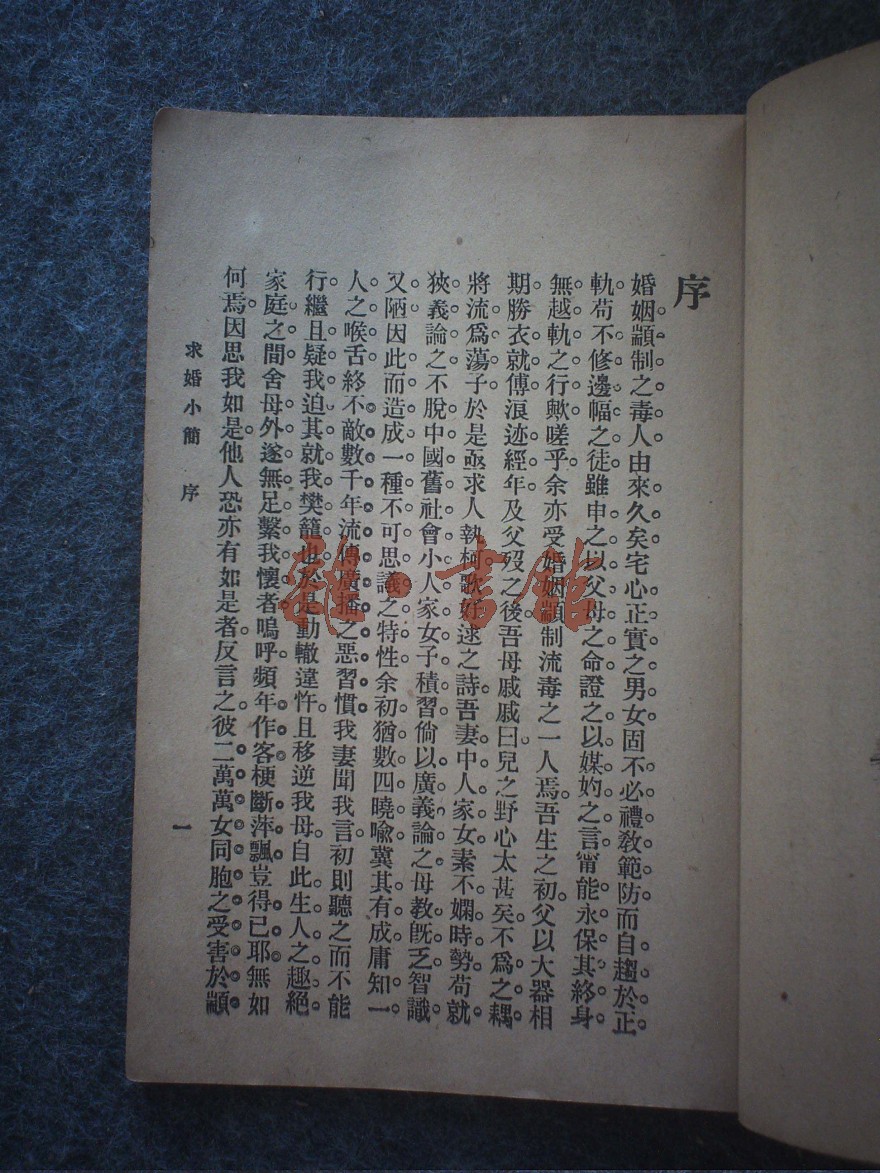 序
婚姻顓制之毒人由來久矣。宅心正實之男女固不必禮敎範防而自趨於正
軌。苟不修邊幅之徒雖申之以父母之命證之以媒妁之言甯能永保其終身
無越軌之行歟。嗟乎余亦受婚姻顓制流毒之一人焉。吾生之初。父以大器相
期。勝衣就傅。浪迹經年。及父歿之後。吾母戚戚曰。兒之野心太甚矣。不爲之耦。
將流爲蕩子。於是亟求人執柯。歌好逑之詩。吾妻中人家女。素不嫻時勢。苟就
狹義論之。不脫中國舊社會小人家女子積習。倘以廣義論之。母教旣乏。智識
又陋。因此而造成一種不可思議之特性。余初猶數四曉喩。冀其有成。庸知一
人之喉舌。終不敵數千年流傳廣播之惡習慣。我妻聞我言。初則聽之而不能
行。繼且疑我迫其就我樊籠也。於是動轍違忤。且移逆我母。自此生人之趣絕。
家庭之間。舍母外遂無足繫我懷者。嗚呼。頻年作客。梗斷萍飄。豈得已耶。無如
何焉。因思我如是。他人恐亦有如是者。反言之。彼二萬萬女同胞之受害於顓
求婚小簡 序
一
雜·書館